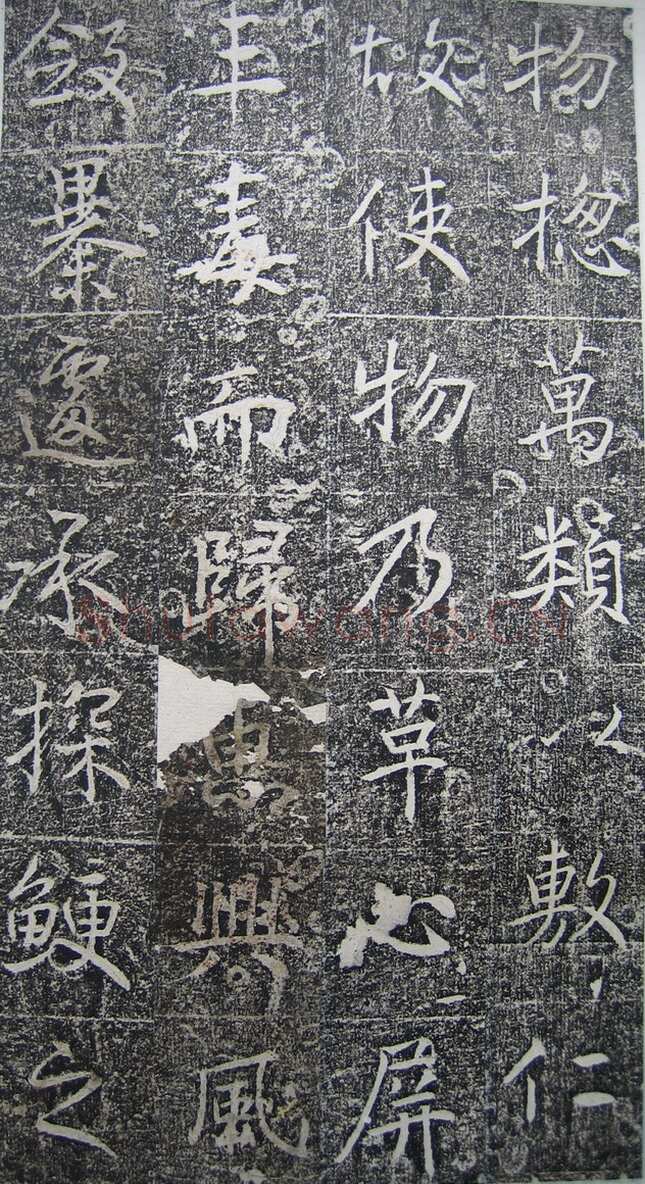 物揔萬類以敷仁
故使物乃草心屏
丰毒而歸惠興風
斂暴遝承探鯁之
shufawang.CN